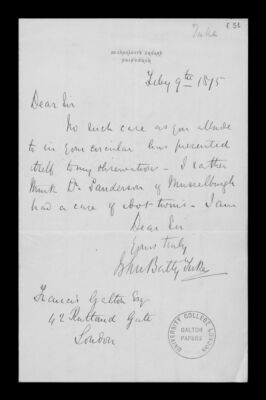 Tuke
Feby 9th 1875
Dear Sir
No such case as you allude
to in your circular has presented
itself to my observation - I rather
think Dr Sanderson of Musselburgh
had a case of idiot twins - I am
Dear Sir
Yours truly
John Batty Tuke
Francis Galton Esq
42 Rutland Gate
London
UNIVERSITY COLLEGE LONDON
GALTON
PAPERS